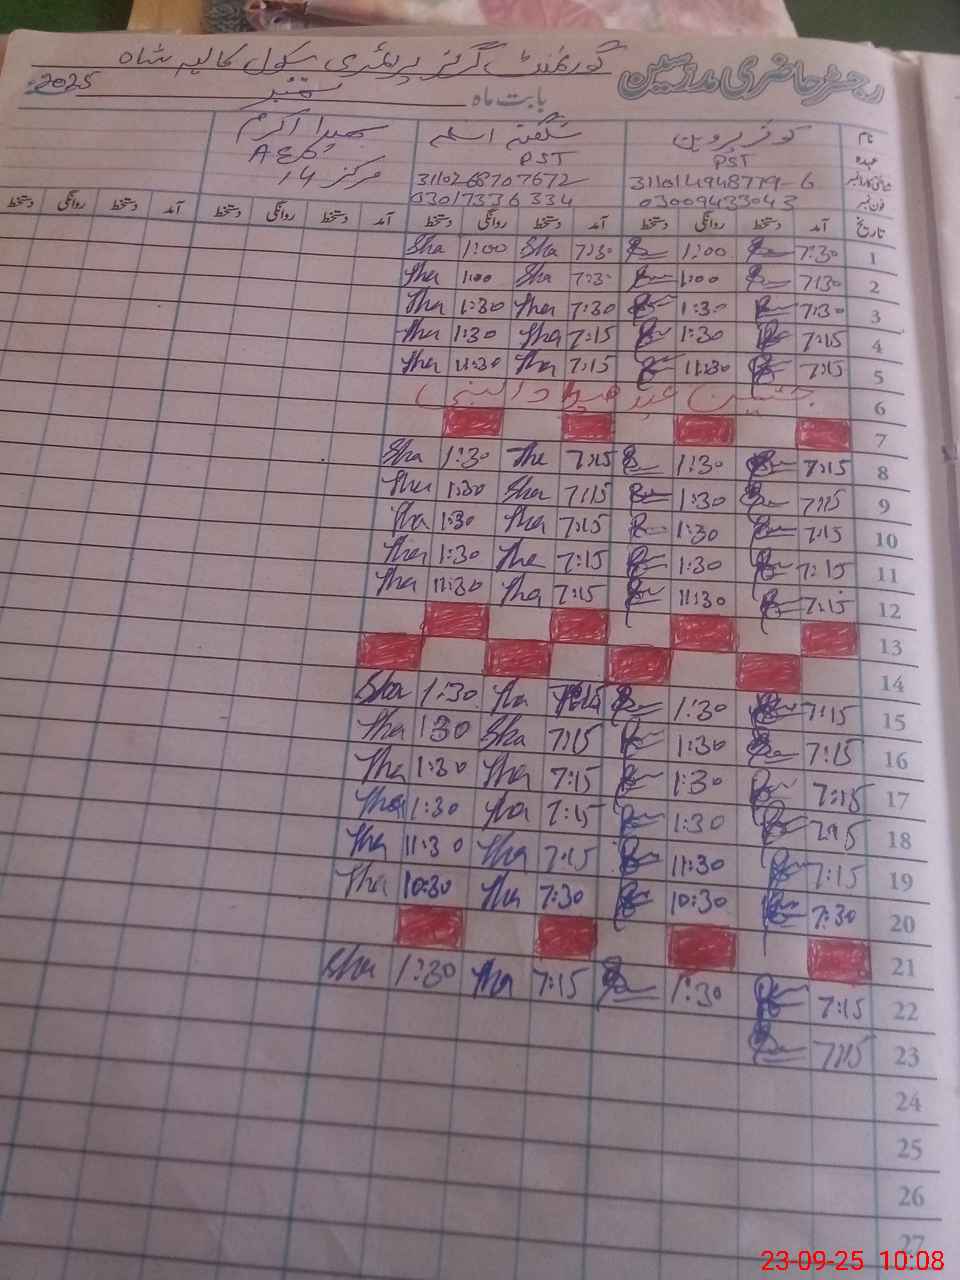 رجسٹر حاضری مدرسین گورنمنٹ گرلز پرائمری سکول کالیہ شاہ
بابت ماہ ستمبر 2025
نام کوثر پروین شگفتہ اسلم اکرم
عہدہ PST PST AEO
3110268707672 مرکز 14
فون نمبر 03009433043 03017336334
تاریخ آمد دستخط روانگی دستخط آمد دستخط روانگی دستخط آمد دستخط روانگی دستخط آمد دستخط روانگی دستخط
1 7:30 1:00 7:30 Sha 1:00 Sha
2 7:30 1:00 7:30 Sha 1:00 Sha
3 7:30 1:30 7:30 Sha 1:30 Sha
4 7:15 1:30 7:15 Sha 1:30 Sha
5 7:15 11:30 7:15 Sha 11:30 Sha
6 جشن عید میلاد النبی
7
8 7:15 1:30 7:15 Sha 1:30 Sha
9 7:15 1:30 7:15 Sha 1:30 Sha
10 7:15 1:30 7:15 Sha 1:30 Sha
11 7:15 1:30 7:15 Sha 1:30 Sha
12 7:15 11:30 7:15 Sha 11:30 Sha
13
14
15 7:15 1:30 7:15 Sha 1:30 Sha
16 7:15 1:30 7:15 Sha 1:30 Sha
17 7:15 1:30 7:15 Sha 1:30 Sha
18 1:30 7:15 Sha 1:30 Sha
19 7:15 11:30 7:15 Sha 11:30 Sha
20 7:30 10:30 7:30 Sha 10:30 Sha
21
22 7:15 1:30 7:15 Sha 1:30 Sha
23 7:15
24
25
26
27
23-09-25 10:08